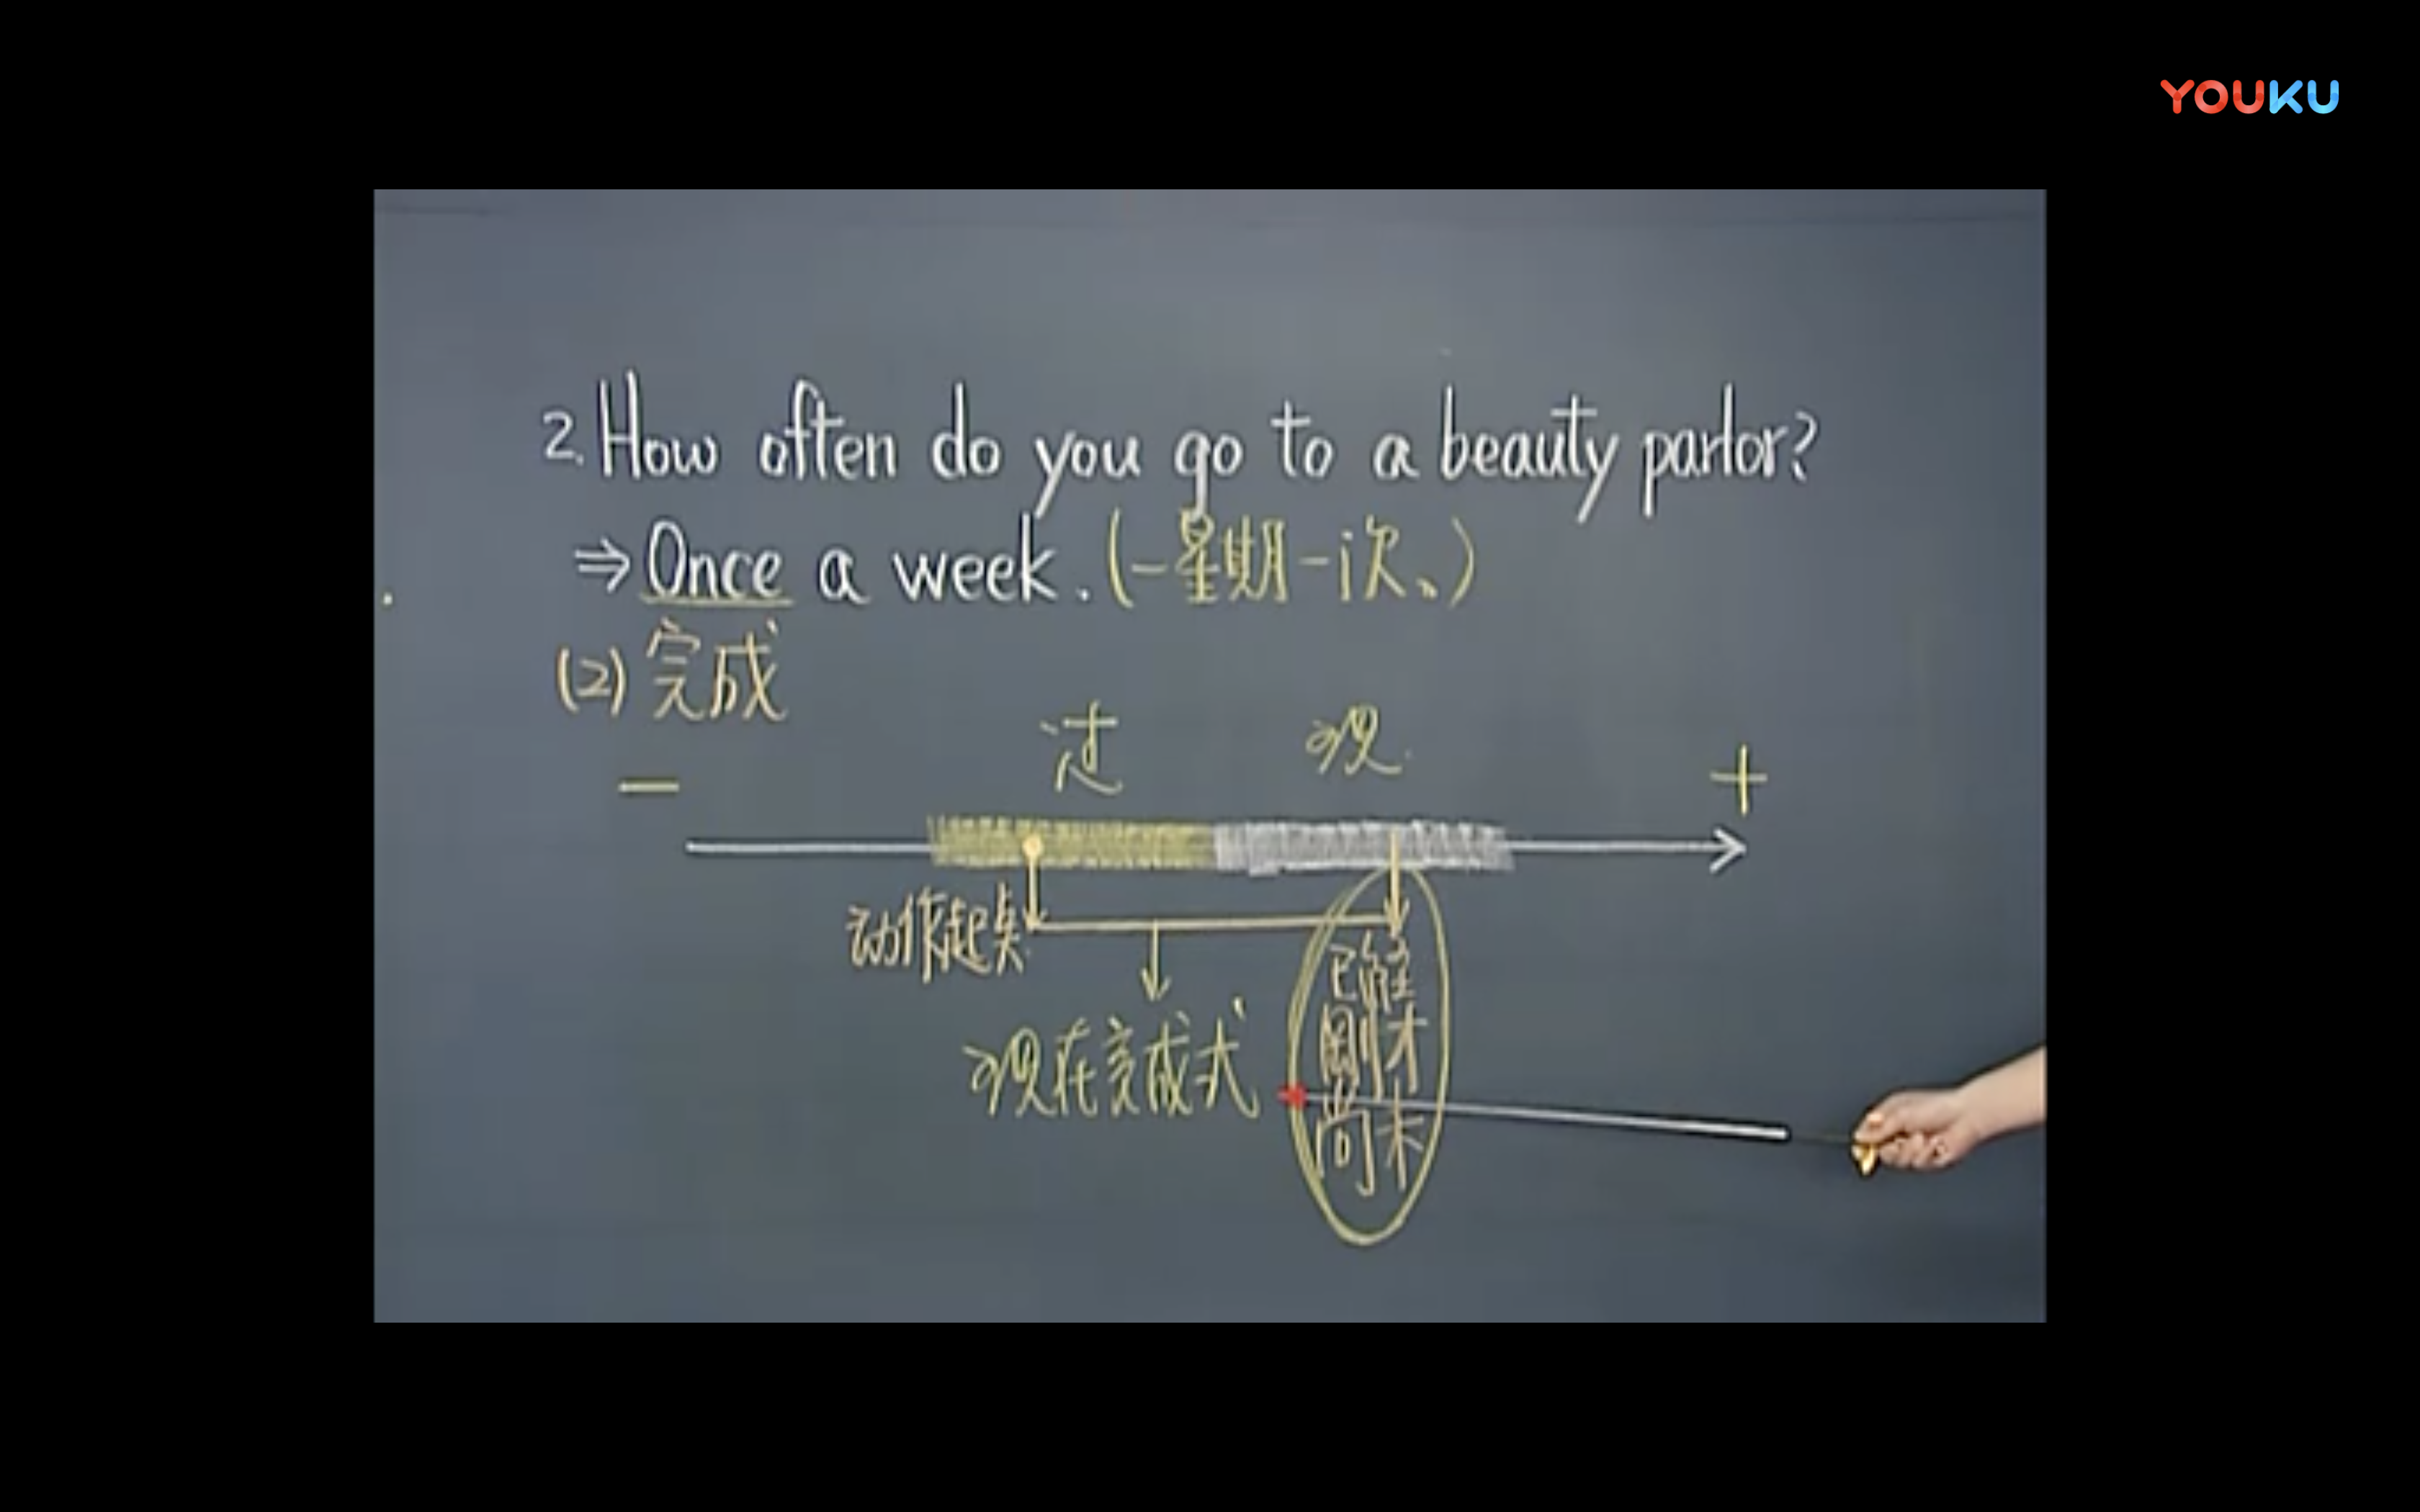 YOUKU
2. How often do you go to a beauty parlor?
⇒ Once a week. (一星期一次、)
(2) 完成
过 现
− +
动作起点
已经
刚才
尚未
现在完成式